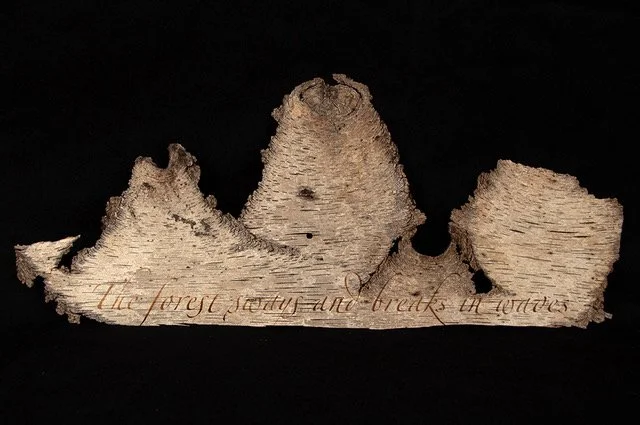 The forest sways and breaks in waves